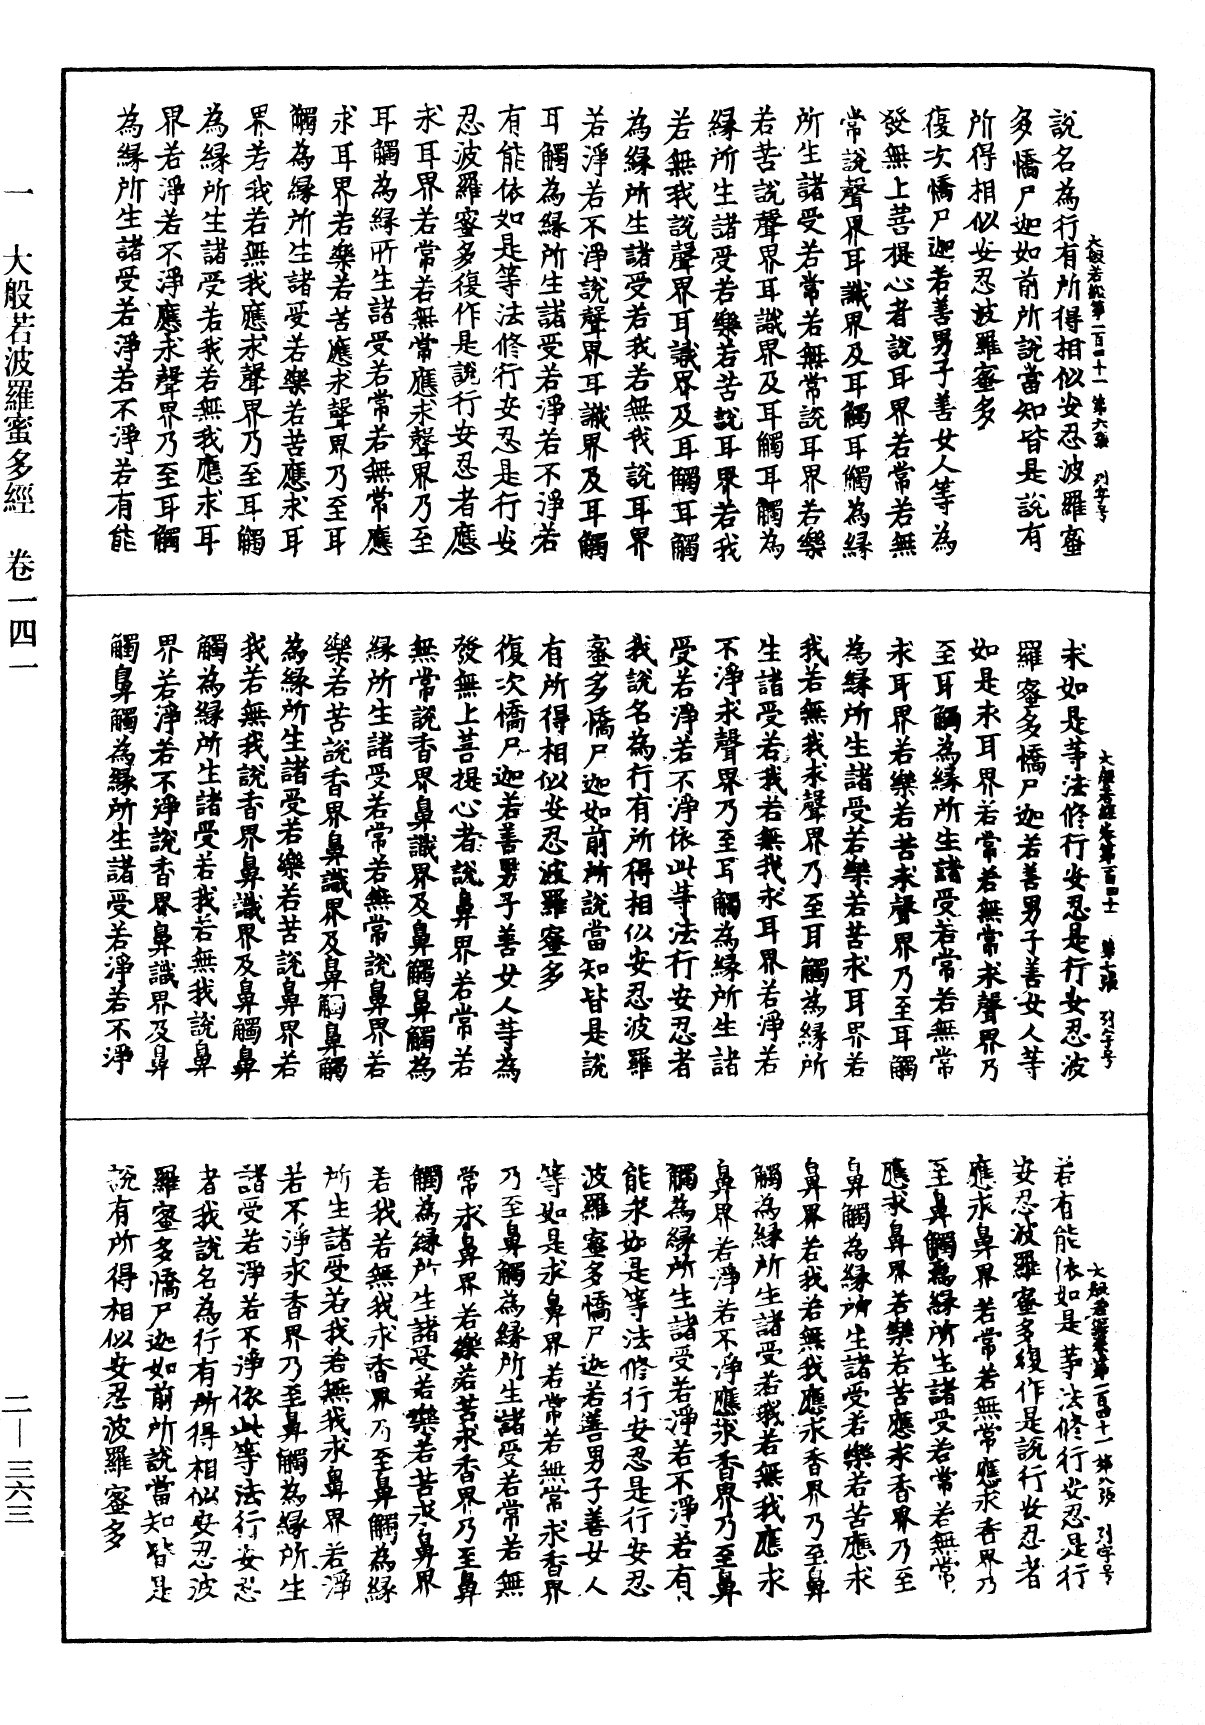 說名為行有所得相似安忍波羅蜜
多憍尸迦如前所說當知皆是說有
所得相似安忍波羅蜜多
復次憍尸迦若善男子善女人等為
發無上菩提心者說耳界若常若無
常說聲界耳識界及耳觸耳觸為緣
所生諸受若常若無常說耳界若樂
若苦說聲界耳識界及耳觸耳觸為
緣所生諸受若樂若苦說耳界若我
若無我說聲界耳識界及耳觸耳觸
為緣所生諸受若我若無我說耳界
若淨若不淨說聲界耳識界及耳觸
耳觸為緣所生諸受若淨若不淨若
有能依如是等法修行安忍是行安
忍波羅蜜多復作是說行安忍者應
求耳界若常若無常應求聲界乃至
耳觸為緣所生諸受若常若無常應
求耳界若樂若苦應求聲界乃至耳
觸為緣所生諸受若樂若苦應求耳
界若我若無我應求聲界乃至耳觸
為緣所生諸受若我若無我應求耳
界若淨若不淨應求聲界乃至耳觸
為緣所生諸受若淨若不淨若有能
大般若經第一百四十一 第六張 列字号
求如是等法修行安忍是行安忍波
羅蜜多憍尸迦若善男子善女人等
如是求耳界若常若無常求聲界乃
至耳觸為緣所生諸受若常若無常
求耳界若樂若苦求聲界乃至耳觸
為緣所生諸受若樂若苦求耳界若
我若無我求聲界乃至耳觸為緣所
生諸受若我若無我求耳界若淨若
不淨求聲界乃至耳觸為緣所生諸
受若淨若不淨依此等法行安忍者
我說名為行有所得相似安忍波羅
蜜多憍尸迦如前所說當知皆是說
有所得相似安忍波羅蜜多
復次憍尸迦若善男子善女人等為
發無上菩提心者說鼻界若常若
無常說香界鼻識界及鼻觸鼻觸為
緣所生諸受若常若無常說鼻界若
樂若苦說香界鼻識界及鼻觸鼻觸
為緣所生諸受若樂若苦說鼻界若
我若無我說香界鼻識界及鼻觸鼻
觸為緣所生諸受若我若無我說鼻
界若淨若不淨說香界鼻識界及鼻
觸鼻觸為緣所生諸受若淨若不淨
大般若經卷第一百四十一 第七張 列字号
若有能依如是等法修行安忍是行
安忍波羅蜜多復作是說行安忍者
應求鼻界若常若無常應求香界乃
至鼻觸為緣所生諸受若常若無常
應求鼻界若樂若苦應求香界乃至
鼻觸為緣所生諸受若樂若苦應求
鼻界若我若無我應求香界乃至鼻
觸為緣所生諸受若我若無我應求
鼻界若淨若不淨應求香界乃至鼻
觸為緣所生諸受若淨若不淨若有
能求如是等法修行安忍是行安忍
波羅蜜多憍尸迦若善男子善女人
等如是求鼻界若常若無常求香界
乃至鼻觸為緣所生諸受若常若無
常求鼻界若樂若苦求香界乃至鼻
觸為緣所生諸受若樂若苦求鼻界
若我若無我求香界乃至鼻觸為緣
所生諸受若我若無我求鼻界若淨
若不淨求香界乃至鼻觸為緣所生
諸受若淨若不淨依此等法行安忍
者我說名為行有所得相似安忍波
羅蜜多憍尸迦如前所說當知皆是
說有所得相似安忍波羅蜜多
大般若經卷第一百四十一 第八張 列字号
一 大般若波羅蜜多經 卷一四一
二—三六三